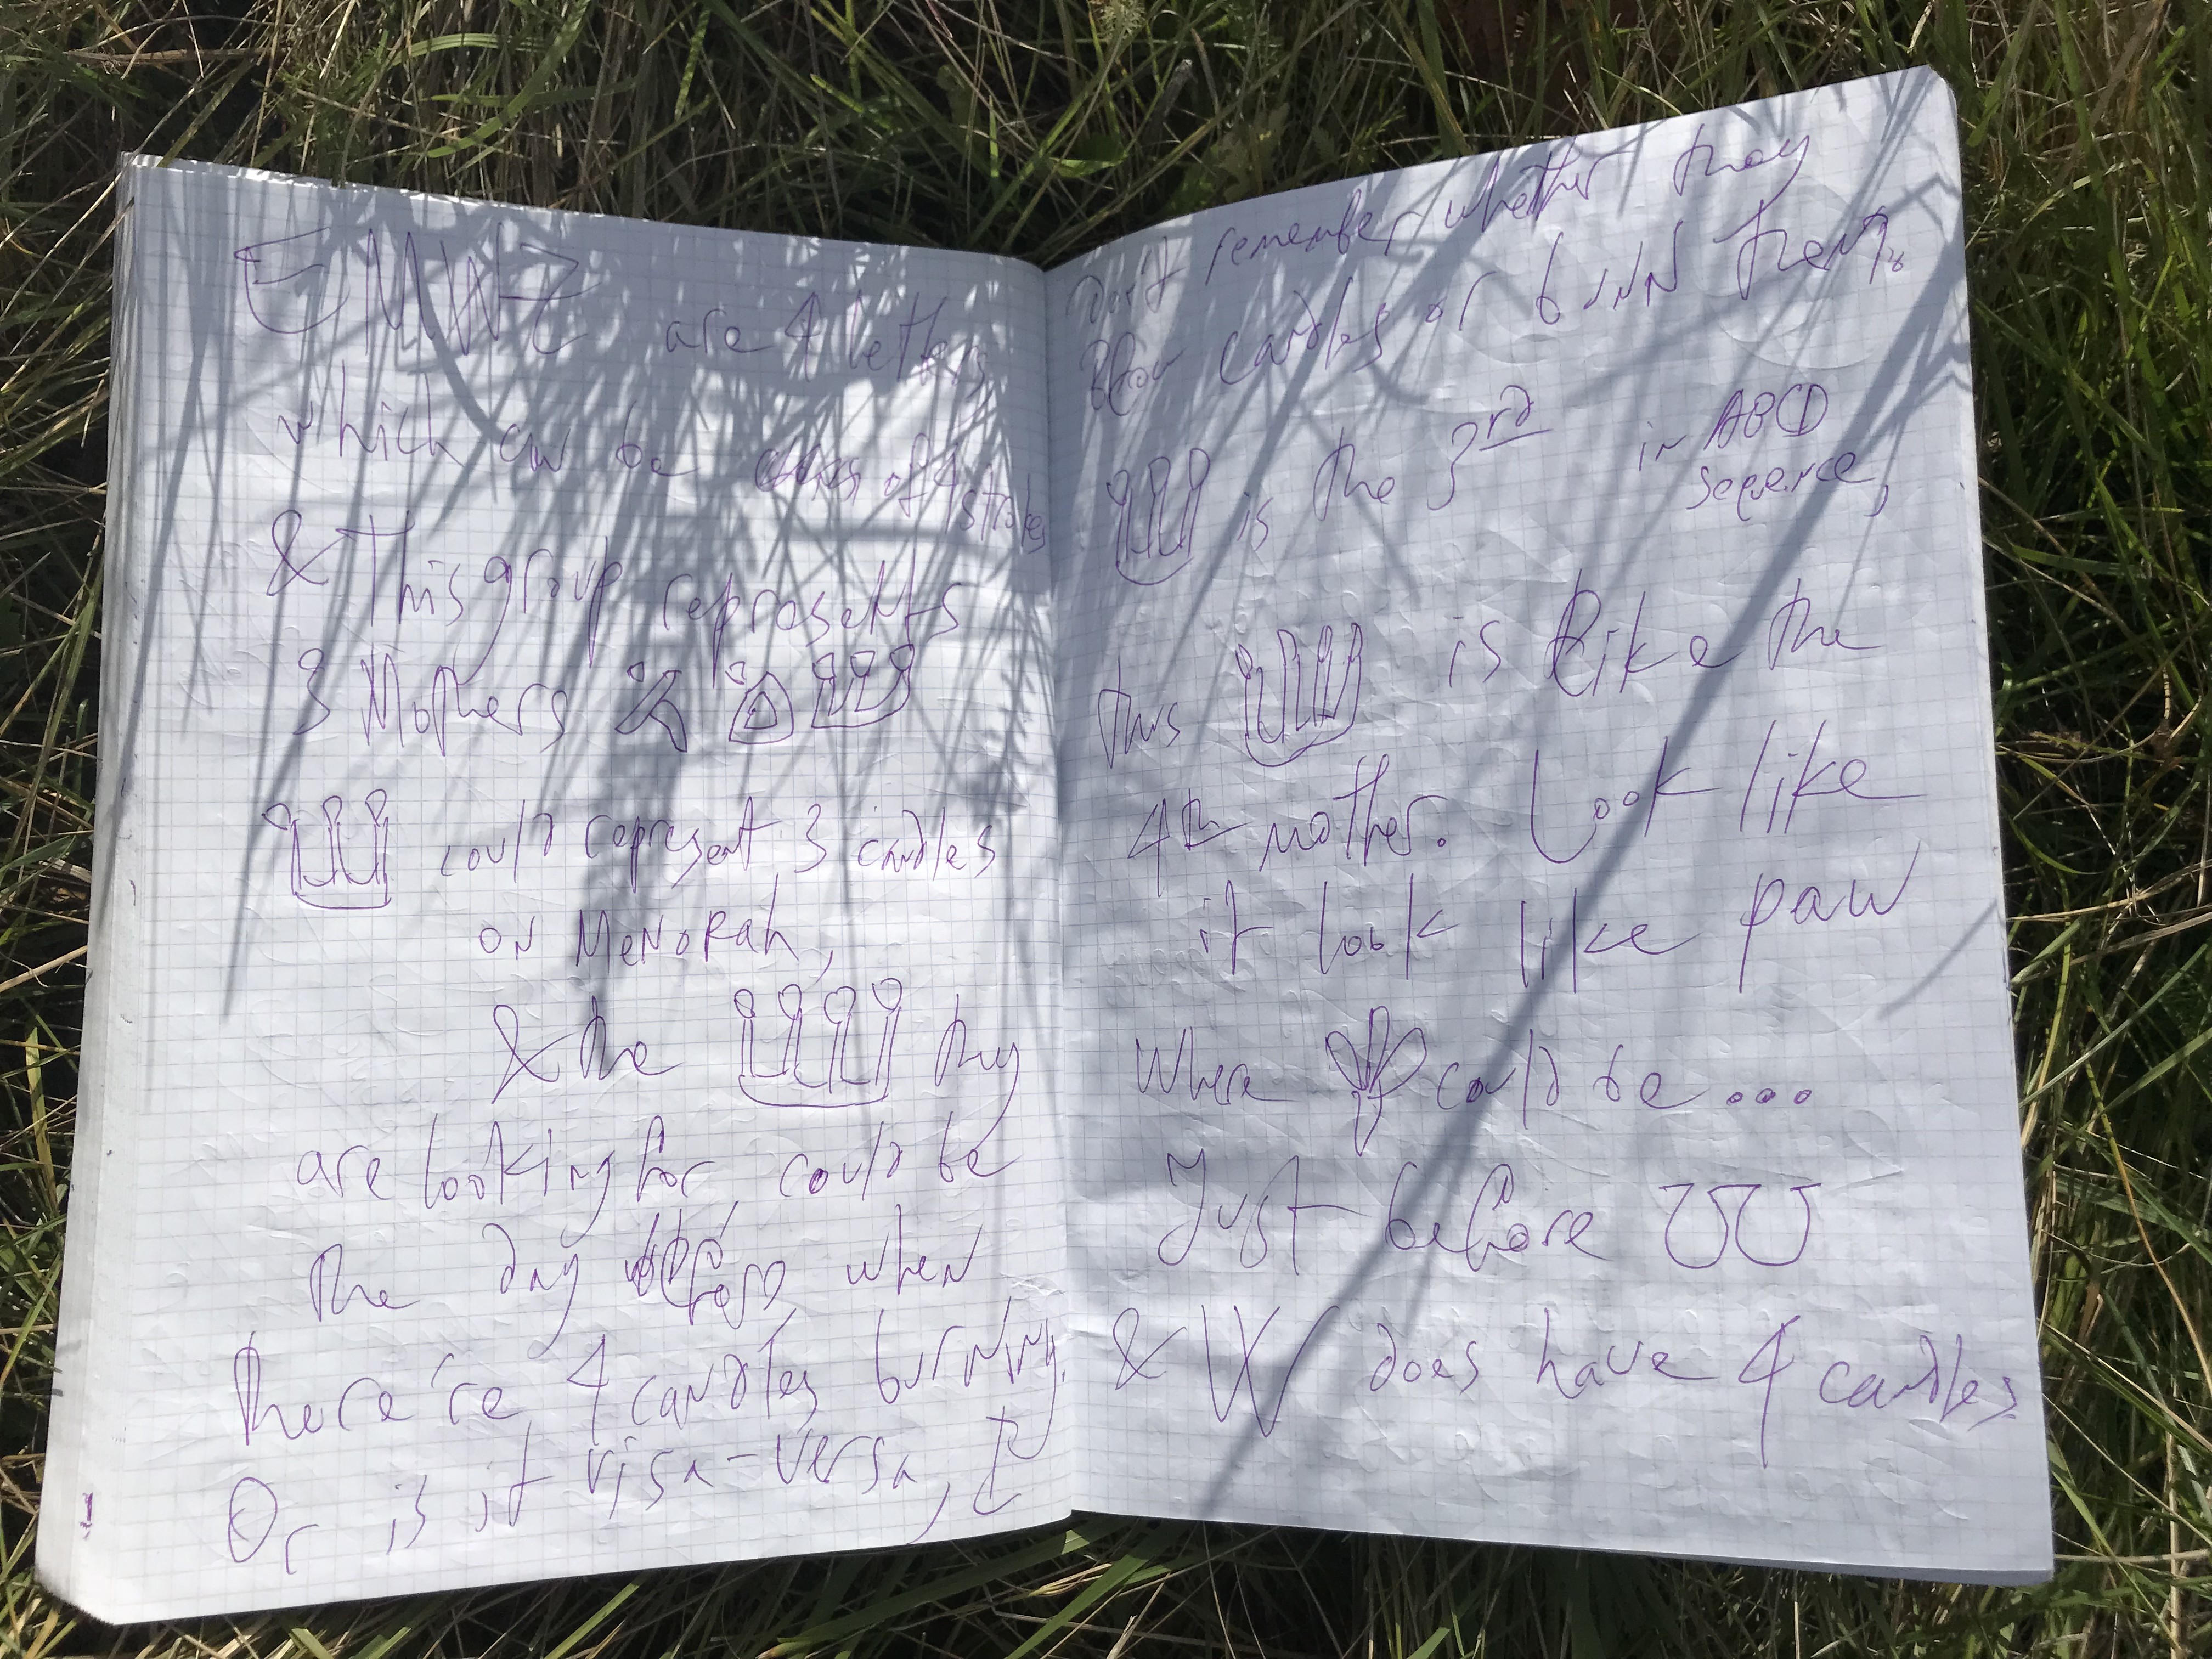 are 4 letters
which can be
& This group represents
3 Mothers
could represent 3 candles
on MENORah,
& the they
are looking for could be
the day before when
there're 4 candles burning.
Or is it visa-versa, I
don't remember whether they
Blow candles or burn them,
is the 3rd in ABCD
seqence,
this is like the
4th mother. Look like
it look like paw
Where could be...
Just before
& W does have 4 candles